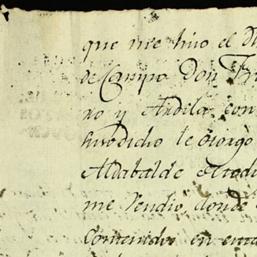 que me hiso el D
de Campo Don Fr
no y Ardila con
susodicho le otorgo
Aldabalde
me vendio, donde
Contenido en